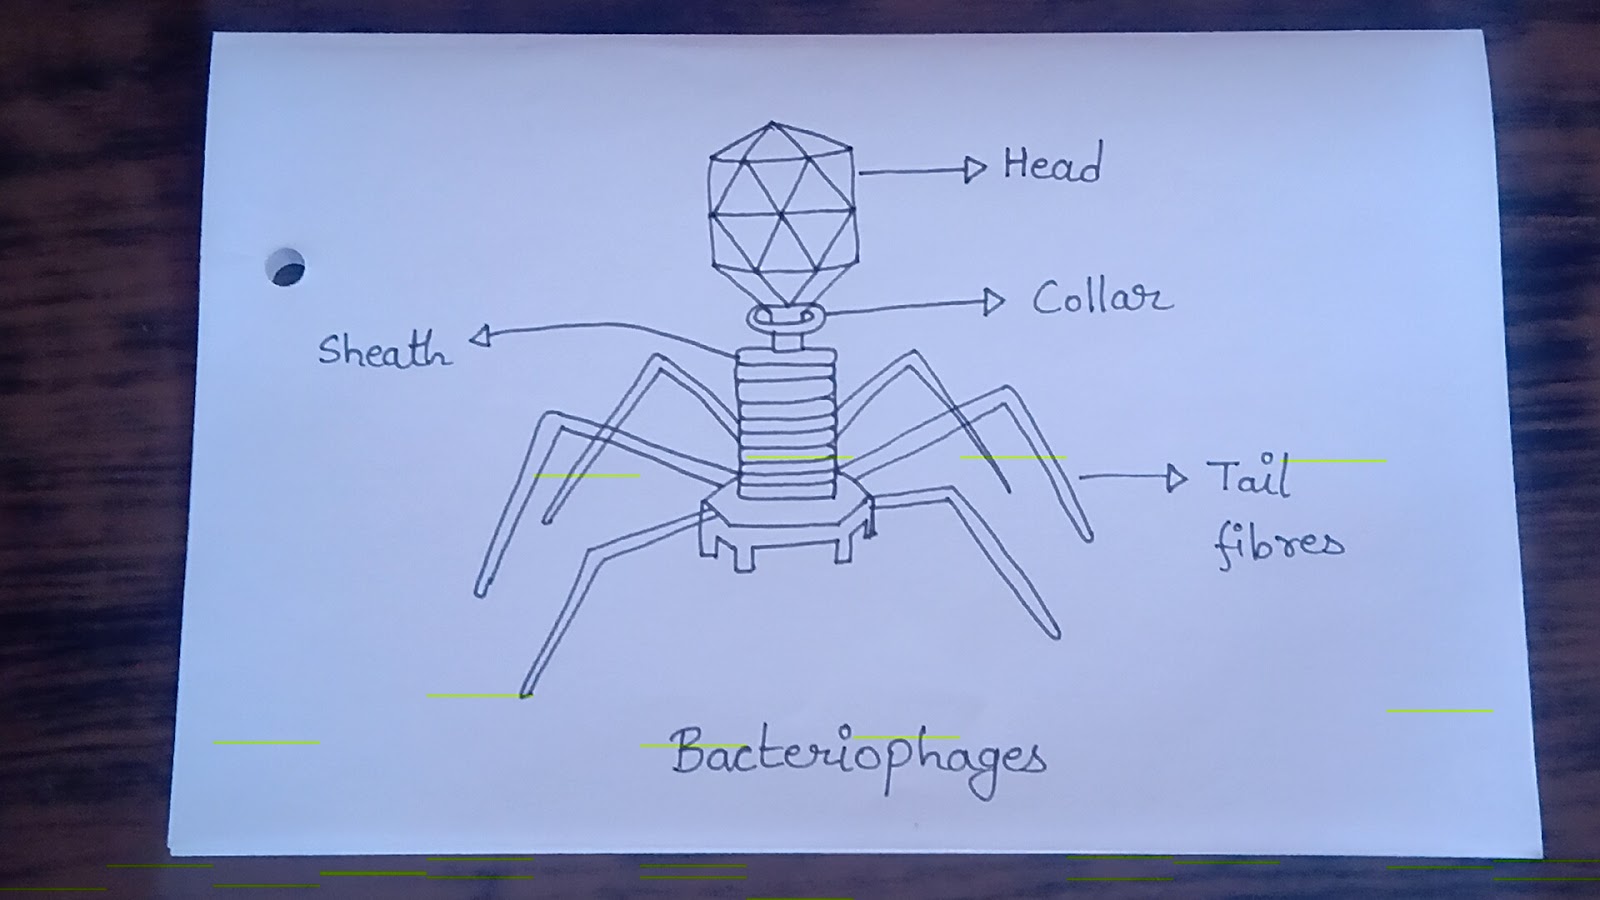 Head
Collar
Sheath
Tail
fibres
Bacteriophages